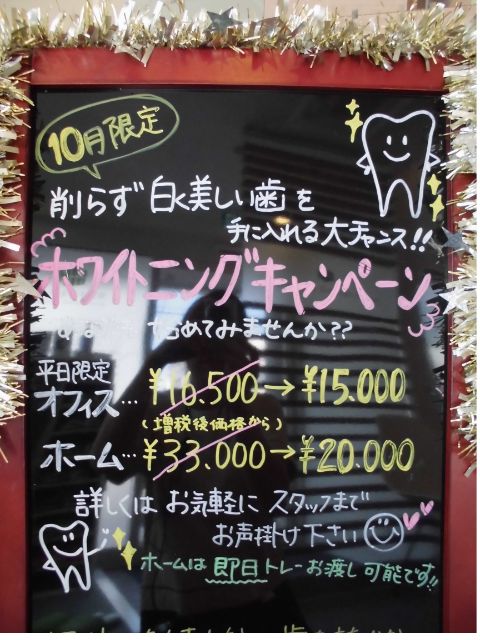 10月限定
削らず白く美しい歯を
手に入れる大チャンス!!
ホワイトニングキャンペーン
てみませんか??
平日限定
オフィス… ¥16.500→¥15.000
(増税後価格から)
ホーム… ¥33.000→¥20.000
詳しくは お気軽に スタッフまで
お声掛け下さい
ホームは即日トレーお渡し可能です!!